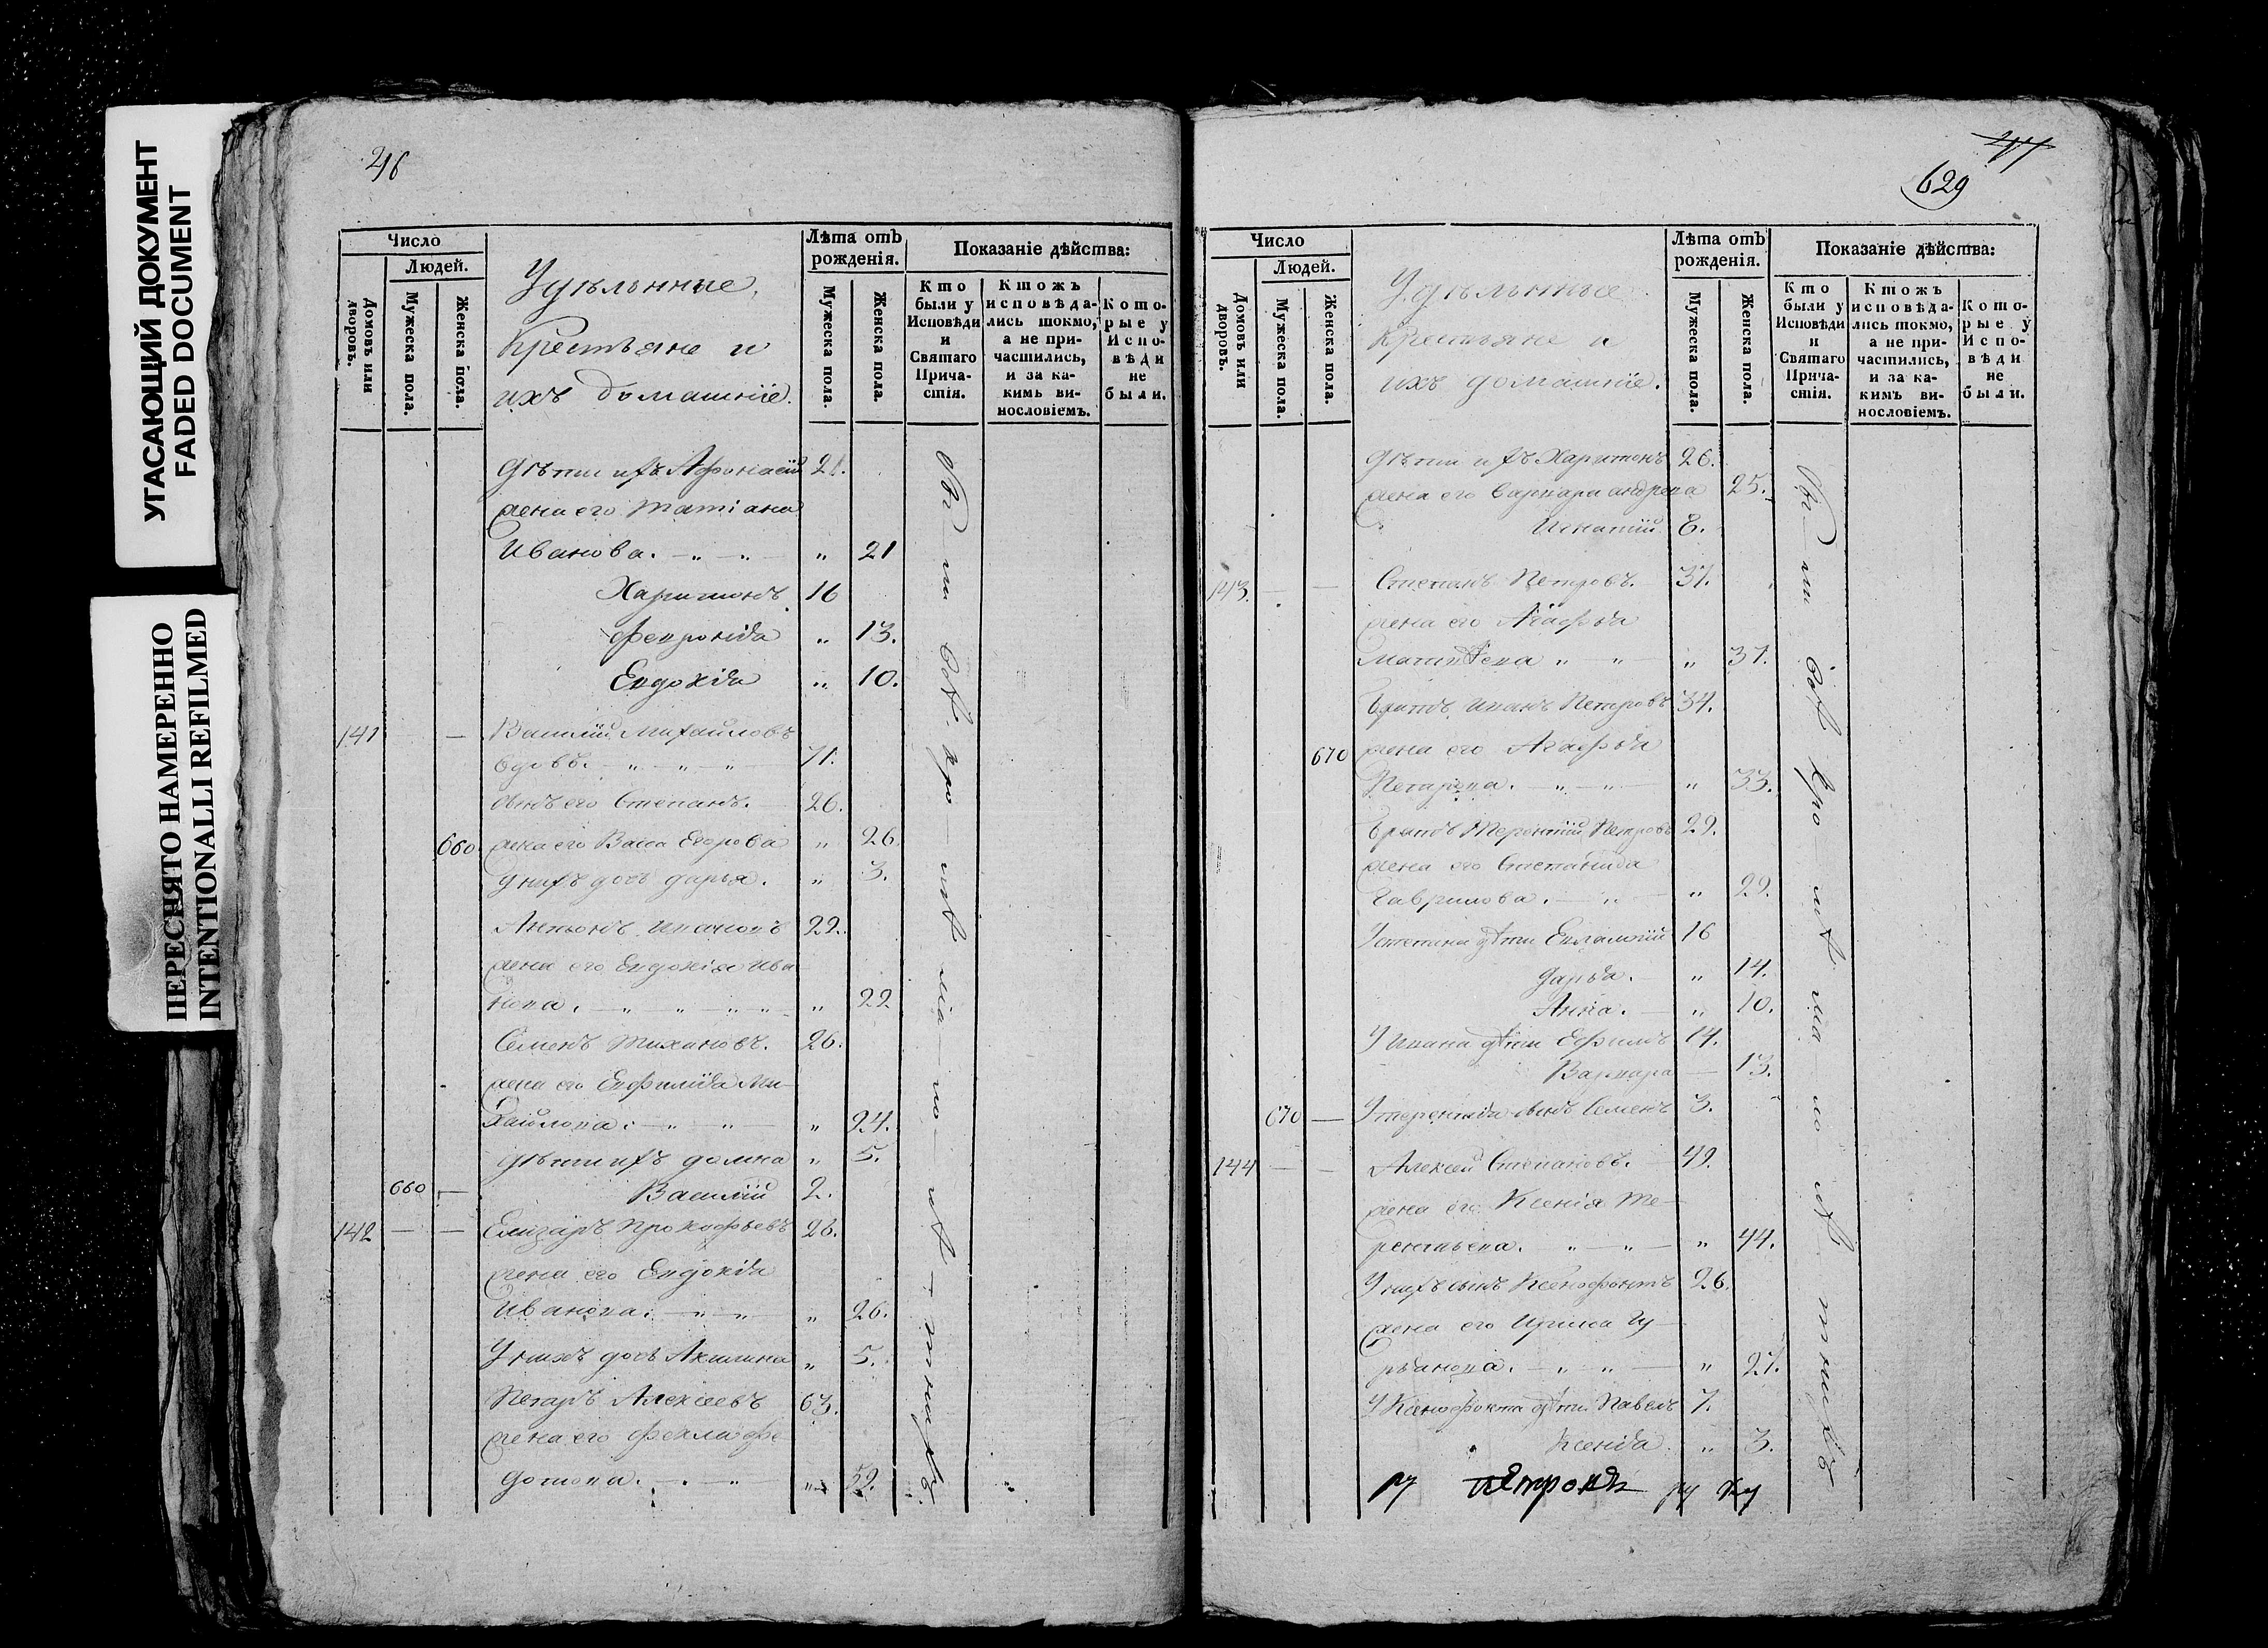 УГАСАЮЩИЙ ДОКУМЕНТ
FADED DOCUMENT
ПЕРЕСНЯТО НАМЕРЕННО
INTENTIONALLI REFILMED
46
Число
Людей.
Домовъ или дворовъ.
Мужеска пола.
Женска пола.
Удѣльнные
Крестьяне и
ихъ домашніе.
Лѣта отъ рожденія.
Мужеска пола.
Женска пола.
Показаніе дѣйства:
Кто были у Исповѣди и Святаго Прича- стія.
Ктожъ исповѣда- лись токмо, а не при- частились, и за ка- кимъ ви- нословіемъ.
Кото- рые у Испо- вѣди не были.
Дѣти ихъ Афонасій 21.
жена его Татіана
Иванова. „ 21
Харитонъ 16
Февронія „ 13.
Евдокія „ 10.
141 — Василій Михайловъ
вдовъ. „ „ „ 71.
сынъ его Степанъ. 26.
660 жена его Васса Егорова „ 26
У нихъ дочь Дарья. „ 3.
Антонъ Ивановъ 22.
жена его Евдокія Ива
нова. „ „ „ „ 22
Семенъ Тихановъ. 26.
жена его Евфимія Ми-
хайлова. „ „ „ 24.
Дѣти ихъ Домна „ 5.
660 — Василій 2.
142 — — Елизаръ Прокофьевъ 26.
жена его Евдокія
Иванова. „ „ „ 26.
У нихъ дочь Акилина „ 5.
Петръ Алексеевъ 63.
жена его Фекла Фе
дотова. „ „ 52.
629
Число
Людей.
Домовъ или дворовъ.
Мужеска пола.
Женска пола.
Удѣльные
Крестьяне и
ихъ домашніе.
Лѣта отъ рожденія.
Мужеска пола.
Женска пола.
Показаніе дѣйства:
Кто были у Исповѣди и Святаго Прича- стія.
Ктожъ исповѣда- лись токмо, а не при- частились, и за ка- кимъ ви- нословіемъ.
Кото- рые у Испо- вѣди не были.
Дѣти ихъ Харитонъ 26.
жена его Варвара Андрева 25.
Игнатій 8.
143. — — Степанъ Петровъ. 37.
жена его Агафья
Матвѣева „ „ „ 37.
Братъ Иванъ Петровъ 34.
670 жена его Агафья
Петрова. „ „ „ 33.
Братъ Терентій Петровъ 29.
жена его Степанида
Гаврилова. „ „ 29.
У Степана дѣти Евлампій 16
Дарья. „ 14.
Анна. „ 10.
У Ивана дѣти Ефимъ 14.
Варвара — 13.
670 — У Терентія сынъ Семенъ 3.
144 — — Алексей Степановъ. 49.
жена его Ксенія Те-
рентьева. „ „ „ 44.
У нихъ сынъ Ксенофонтъ 26.
жена его Ирина Гу-
рьянова. „ „ „ 27.
У Ксенофонта дѣти Павелъ 7.
Ксенія. „ 3.